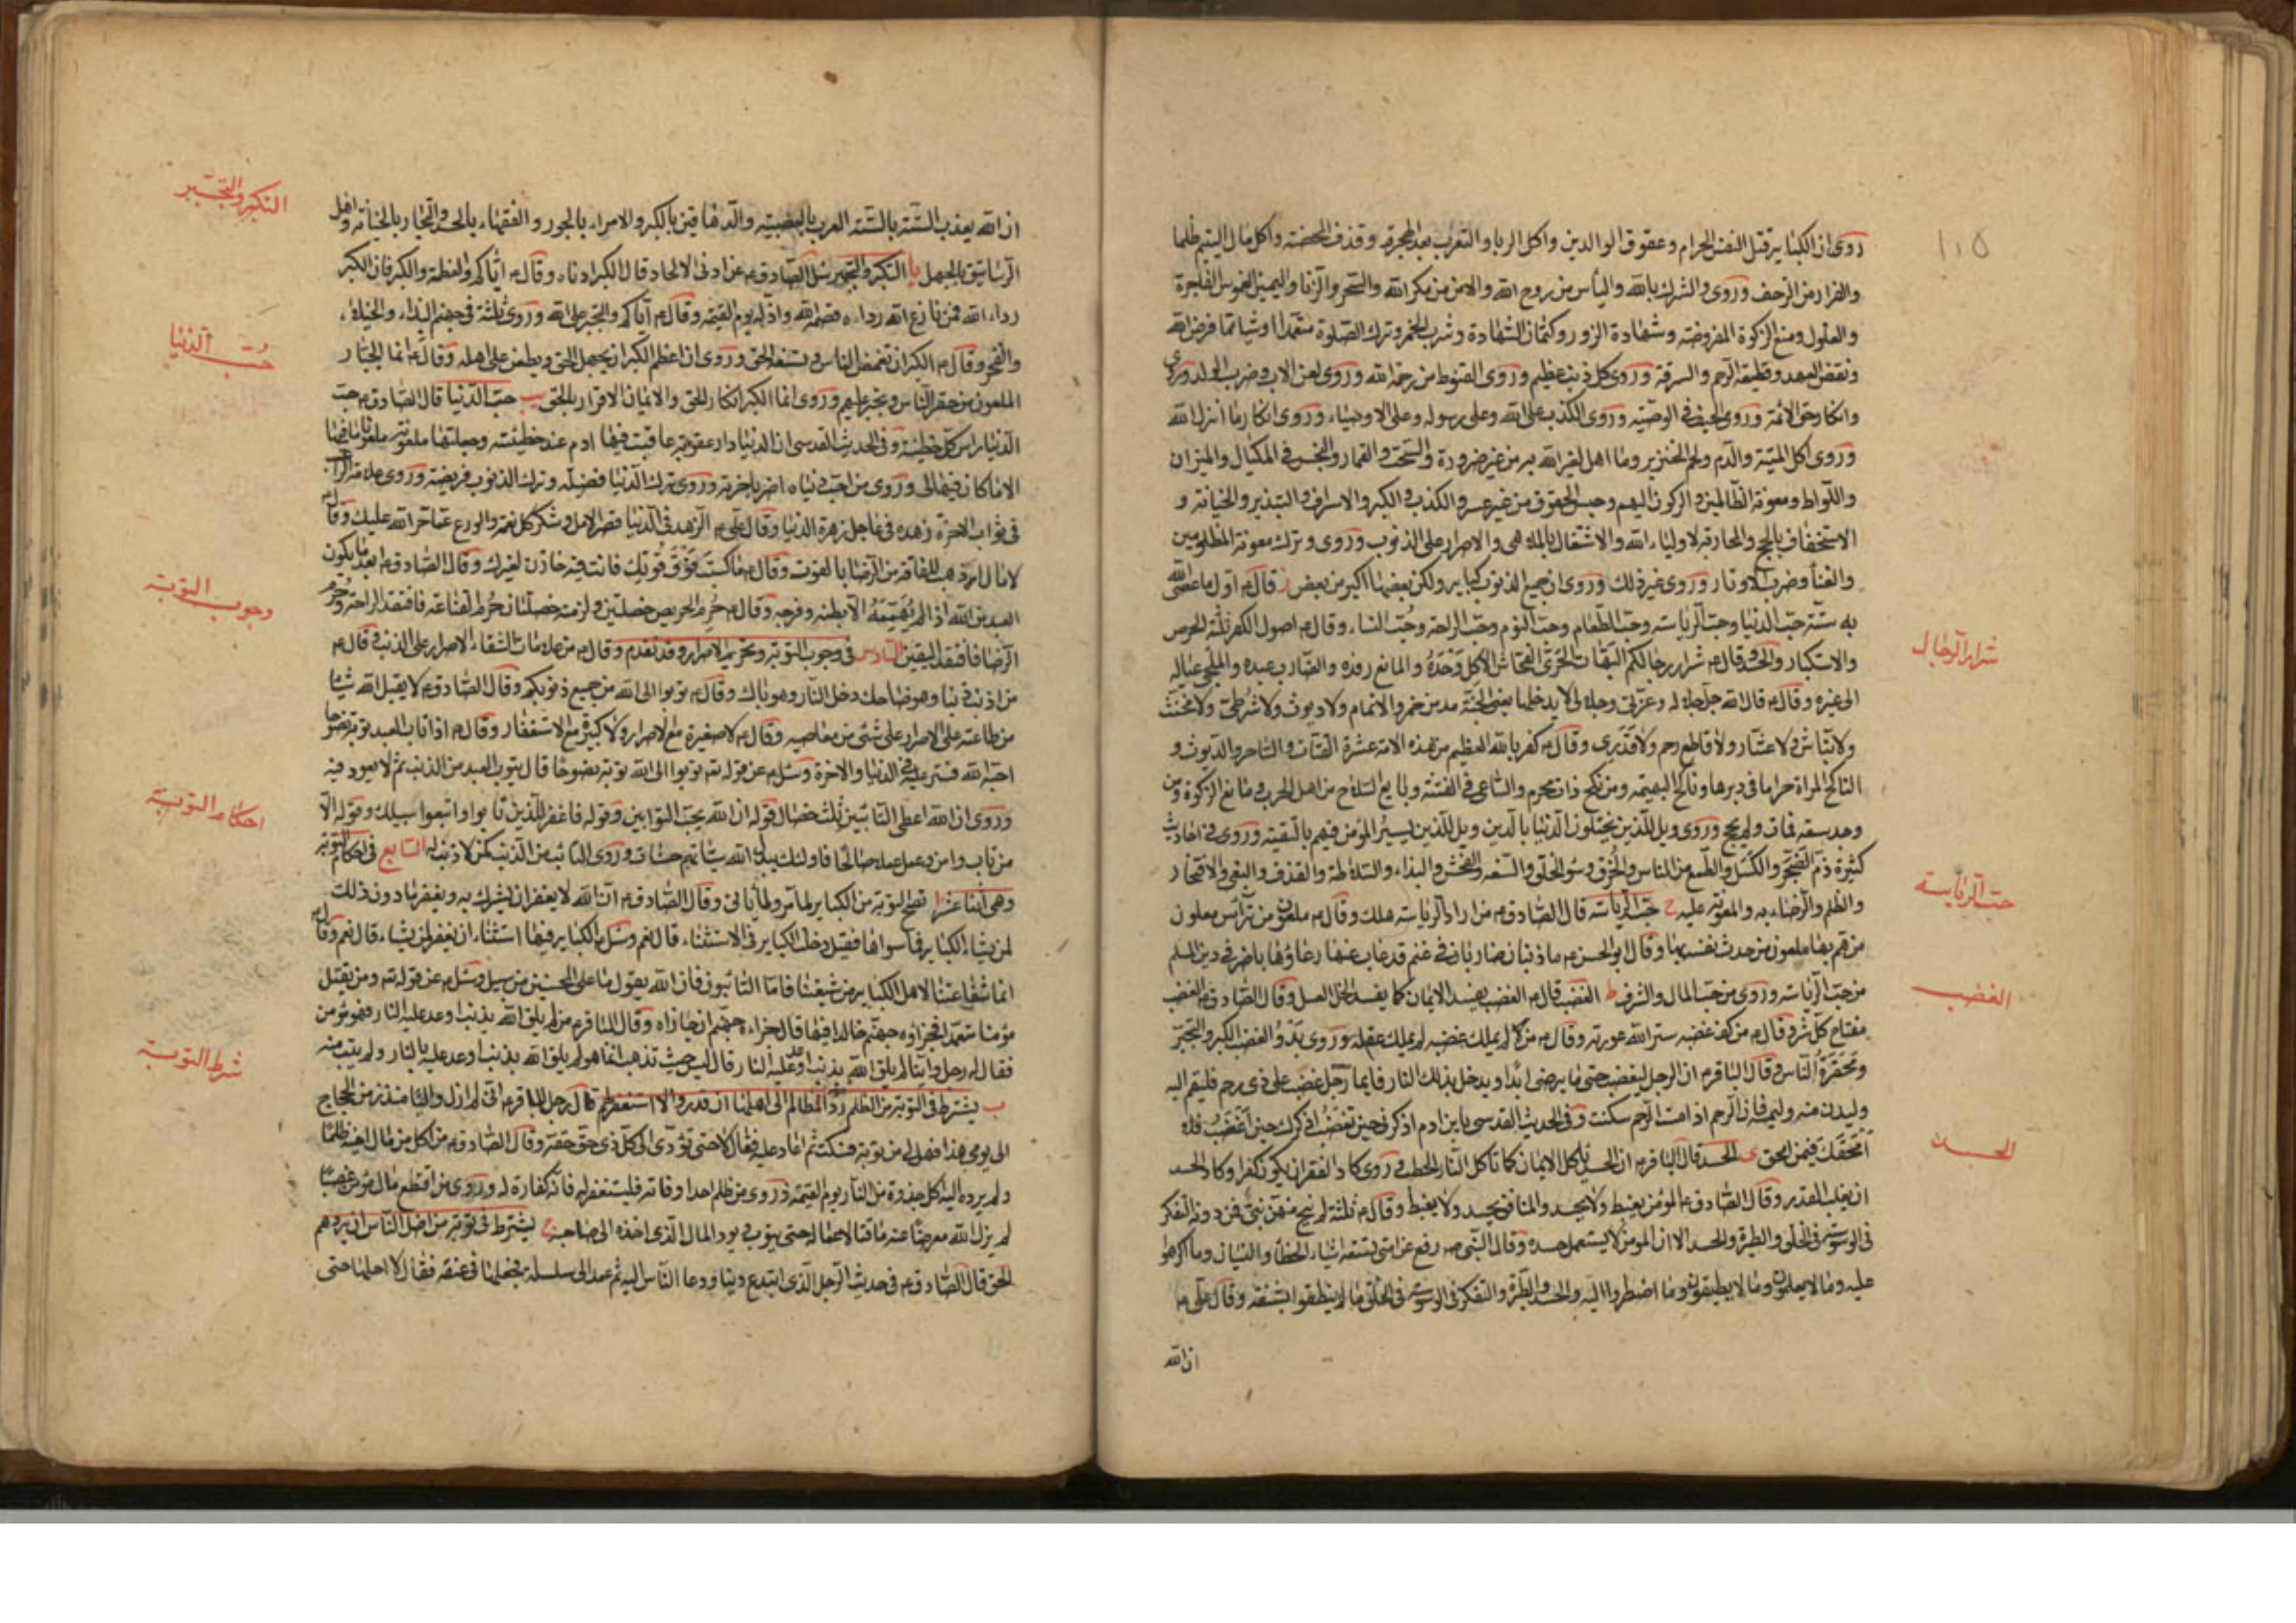 ١٠٥
روى ان الكبائر قتل النفس الحرام وعقوق الوالدين واكل الربا والتعرب بعد الهجرة وقذف المحصنة واكل مال اليتيم ظلما
والفرار من الزحف وروى والشرك بالله واليأس من روح الله والامن من مكر الله والسحر والزنا واليمين الغموس الفاجرة
والغلول ومنع الزكوة المفروضة وشهادة الزور وكتمان الشهادة وشرب الخمر وترك الصلوة متعمدا وشيئا مما فرض الله
ونقض العهد وقطيعة الرحم والسرقة وروى كل ذنب عظيم وروى القنوط من رحمة الله وروى لعن الاب وضرب الولد وروى
وانكار حق الائمة وروى الحيف في الوصية وروى الكذب على الله وعلى رسوله وعلى الاوصياء وروى انكار ما انزل الله
وروى اكل الميتة والدم ولحم الخنزير وما اهل لغير الله به من غير ضرورة والسحت والقمار والبخس في المكيال والميزان
واللواط ومعونة الظالمين والركون اليهم وحبس الحقوق من غير عسر والكذب والكبر والاسراف والتبذير والخيانة و
الاستخفاف بالحج والمحاربة لاولياء الله والاشتغال بالملاهي والاصرار على الذنوب وروى وترك معونة المظلومين
والغناء وضرب الاوتار وروى غير ذلك وروى ان جميع الذنوب كباير ولكن بعضها اكبر من بعض ز قال ع اول ما عصى الله
به ستة حب الدنيا وحب الرياسة وحب الطعام وحب النوم وحب الراحة وحب النساء وقال ع اصول الكفر ثلثة الحرص
شرار الرجال
والاستكبار والحسد وقال ع شرار رجالكم البهات الجرئ الفحاش الاكل وحده والمانع رفده والضارب عبده والملجئ عياله
الى غيره وقال ع قال الله جل جلاله وعزتي وجلالي لا يدخلها يعني الجنة مدمن خمر ولا نمام ولا ديوث ولا شرطي ولا مخنث
ولا نباش ولا عشار ولا قاطع رحم ولا قدري وقال ع كفر بالله العظيم من هذه الامة عشرة القتات والساحر والديوث و
الناكح المراة حراما في دبرها وناكح البهيمة ومن نكح ذات محرم والساعي في الفتنة وبايع السلاح من اهل الحرب ومانع الزكوة ومن
وجد سعة فمات ولم يحج وروى ويل للذين يختلون الدنيا بالدين وويل للذين يسير المؤمن فيهم بالتقية وروى في احاديث
كثيرة ذم الضجر والكسل والطمع من الناس والخرق وسوء الخلق والسفه والفحش والبذاء والسلاطة والقذف والبغي والافتخار
حب الرياسة
والظلم والرضاء به والمعونة عليه ح حب الرياسة قال الصادق ع من اراد الرياسة هلك وقال ع ملعون من تراس ملعون
من هم بها ملعون من حدث نفسه بها وقال ابو الحسن ع ما ذئبان ضاريان في غنم قد غاب عنها رعاؤها باضر في دين المسلم
الغضب
من حب الرياسة وروى من حب المال والشرف ط الغضب قال ع الغضب يفسد الايمان كما يفسد الخل العسل وقال الصادق ع الغضب
مفتاح كل شر وقال ع من كف غضبه ستر الله عورته وقال ع من لم يملك غضبه لم يملك عقله وروى بدو الغضب الكبر والتجبر
ومحقرة الناس وقال الباقر ع ان الرجل ليغضب حتى ما يرضى ابدا ويدخل بذلك النار فايما رجل غضب على ذي رحم فليقم اليه
وليدن منه وليمسه فان الرحم اذا مست الرحم سكنت وفي الحديث القدسي يا بن ادم اذكرني حين تغضب اذكرك حين اغضب فلا
الحسد
امحقك فيمن امحق ى الحسد قال الباقر ع ان الحسد ياكل الايمان كما تاكل النار الحطب وروى كاد الفقر ان يكون كفرا وكاد الحسد
ان يغلب القدر وقال الصادق ع المؤمن يغبط ولا يحسد والمنافق يحسد ولا يغبط وقال ع ثلثة لم ينج منهن نبي فمن دونه التفكر
في الوسوسة في الخلق والطيرة والحسد الا ان المؤمن لا يستعمل حسده وقال النبي ص رفع عن امتي تسعة اشياء الخطأ والنسيان وما اكرهوا
عليه وما لا يعلمون وما لا يطيقون وما اضطروا اليه والحسد والطيرة والتفكر في الوسوسة في الخلق ما لم ينطقوا بشفة وقال علي ع
ان الله
التكبر والتجبر
ان الله يعذب الستة بالستة العرب بالعصبية والدهاقين بالكبر والامراء بالجور والفقهاء بالحسد والتجار بالخيانة واهل
الرساتيق بالجهل يا التكبر والتجبر سئل الصادق ع عن ادنى الالحاد قال الكبر ادناه وقال ع اياكم والعظمة والكبر فان الكبر
رداء الله فمن نازع الله رداءه قصمه الله واذله يوم القيمة وقال ع اياكم والتجبر على الله وروى ثلثة في جهنم البذاء والخيلاء
حب الدنيا
والفخر وقال ع الكبر ان تغمص الناس وتسفه الحق وروى ان اعظم الكبر ان يجهل الحق ويطعن على اهله وقال ع انما الجبار
الملعون من حقر الناس وتجبر عليهم وروى انما الكبر انكار الحق والايمان الاقرار بالحق يب حب الدنيا قال الصادق ع حب
الدنيا راس كل خطيئة وفي الحديث القدسي ان الدنيا دار عقوبة عاقبت فيها ادم عند خطيئته وجعلتها ملعونة ملعون ما فيها
الا ما كان فيها لي وروى من احب دنياه اضر باخرته وروى ترك الدنيا فضيلة وترك الذنوب فريضة وروى علامة الراغب
في ثواب الاخرة زهده في عاجل زهرة الدنيا وقال علي ع الزهد في الدنيا قصر الامل وشكر كل نعمة والورع عما حرم الله عليك وقال ع
لا مال اذهب للفاقة من الرضا بالقوت وقال ع ما كسبت فوق قوتك فانت فيه خازن لغيرك وقال الصادق ع ابعد ما يكون
وجوب التوبة
العبد من الله اذا لم يهمه الا بطنه وفرجه وقال ع حرم الحريص خصلتين ولزمته خصلتان حرم القناعة فافتقد الراحة وحرم
الرضا فافتقد اليقين السادس في وجوب التوبة وتحريم الاصرار وقد تقدم وقال ع من علامات الشقاء الاصرار على الذنب وقال ع
من اذنب ذنبا وهو ضاحك دخل النار وهو باك وقال ع توبوا الى الله من جميع ذنوبكم وقال الصادق ع لا يقبل الله شيئا
من طاعته على الاصرار على شئ من معاصيه وقال ع لا صغيرة مع الاصرار ولا كبيرة مع الاستغفار وقال ع اذا تاب العبد توبة نصوحا
احبه الله فستر عليه في الدنيا والاخرة وسئل ع عن قوله تعالى توبوا الى الله توبة نصوحا قال يتوب العبد من الذنب ثم لا يعود فيه
احكام التوبة
وروى ان الله اعطى التائبين ثلث خصال قوله ان الله يحب التوابين وقوله فاغفر للذين تابوا واتبعوا سبيلك وقوله الا
من تاب وامن وعمل عملا صالحا فاولئك يبدل الله سيئاتهم حسنات وروى التائب من الذنب كمن لا ذنب له السابع في احكام التوبة
وهي اثنا عشر ا تصح التوبة من الكباير لما مر ولما يأتي وقال الصادق ع ان الله لا يغفر ان يشرك به ويغفر ما دون ذلك
لمن يشاء الكباير فما سواها فقيل دخلت الكباير في الاستثناء قال نعم وسئل ع الكباير فيها استثناء ان يغفر لمن يشاء قال نعم وقال ع
انما شفاعتنا لاهل الكباير من شيعتنا فاما التائبون فان الله يقول ما على المحسنين من سبيل وسئل ع عن قوله تعالى ومن يقتل
مؤمنا متعمدا فجزاؤه جهنم خالدا فيها قال جزاءه جهنم ان جازاه وقال الباقر ع من لم يلق الله بذنب اوعد عليه النار فهو مؤمن
شرط التوبة
فقال له رجل واينا لم يلق الله بذنب اوعد عليه النار قال ليس حيث تذهب انما هو لم يلق الله بذنب اوعد عليه بالنار ولم يتب منه
ب يشترط في التوبة من الظلم رد المظالم الى اهلها ان قدر والا استغفر لهم قال رجل للباقر ع اني لم ازل واليا منذ زمن الحجاج
الى يومي هذا فهل لي من توبة فسكت ثم اعاد عليه فقال لا حتى تؤدي الى كل ذي حق حقه وقال الصادق ع من اكل من مال اخيه ظلما
ولم يرده اليه اكل جذوة من النار يوم القيمة وروى من ظلم احدا وفاته فليستغفر له فانه كفارة له وروى من اقتطع مال مؤمن غصبا
لم يزل الله معرضا عنه ماقتا لاعماله حتى يتوب ويرد المال الذي اخذه الى صاحبه ج يشترط في توبة من اضل الناس ان يردهم
الى الحق قال الصادق ع في حديث الرجل الذي ابتدع دينا ودعا الناس اليه ثم عمد الى سلسلة فجعلها في عنقه فقال لا احلها حتى